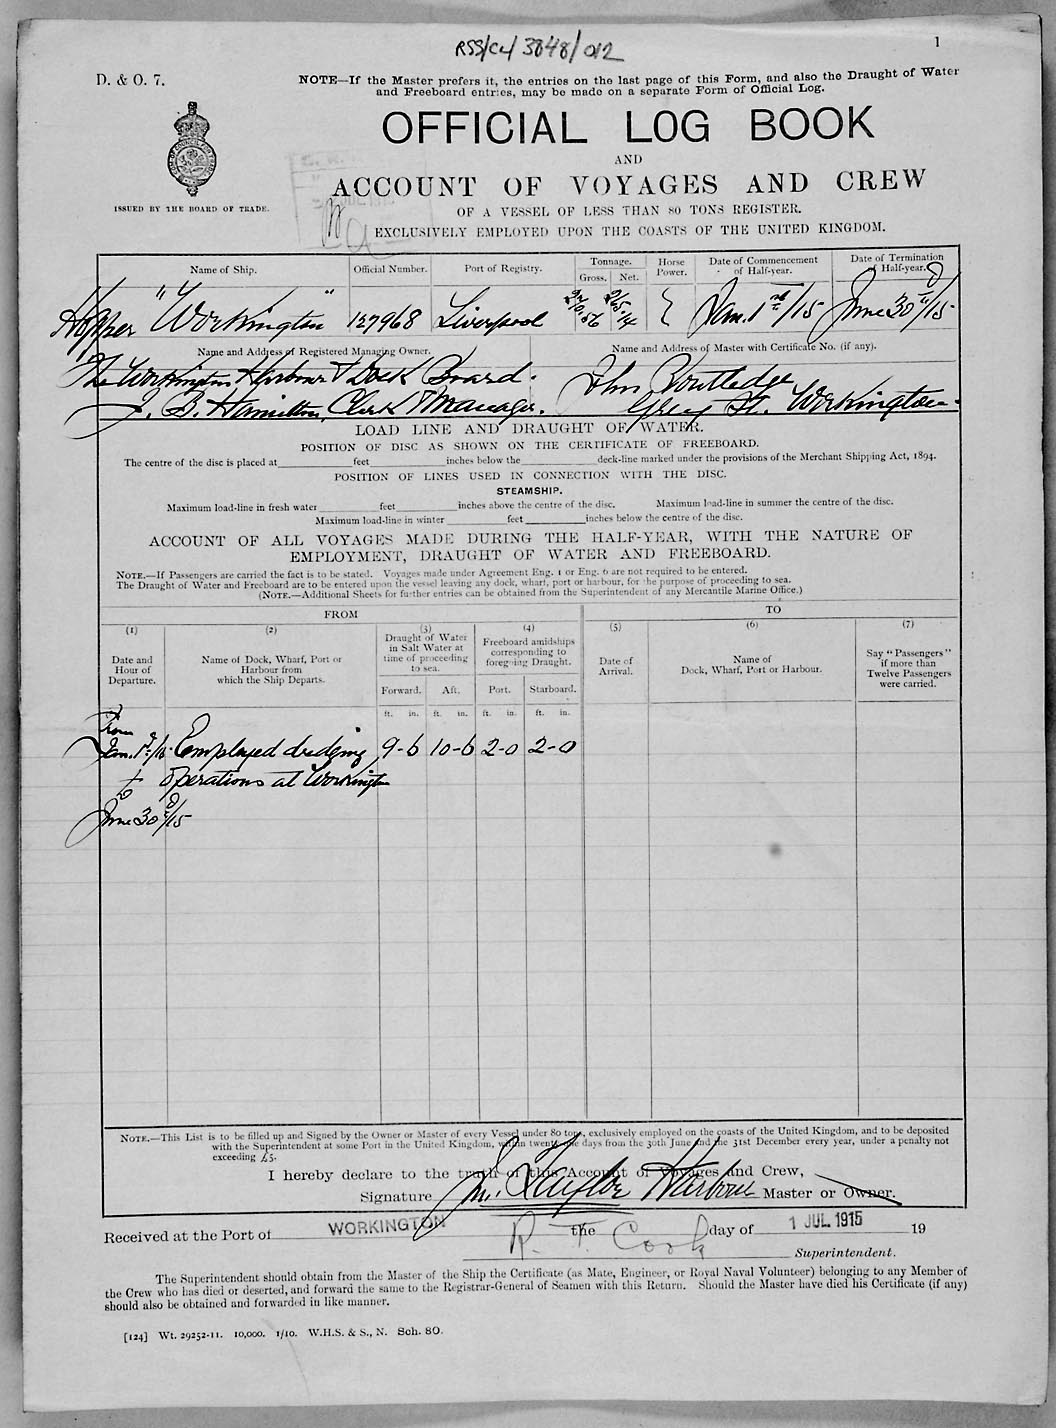 RSS/CL/3848/012
1
D. & O. 7.
NOTE—If the Master prefers it, the entries on the last page of this Form, and also the Draught of Water
and Freeboard entries, may be made on a separate Form of Official Log.
OFFICIAL LOG BOOK
AND
ACCOUNT OF VOYAGES AND CREW
ISSUED BY THE BOARD OF TRADE.
JUL 1915
OF A VESSEL OF LESS THAN 80 TONS REGISTER.
EXCLUSIVELY EMPLOYED UPON THE COASTS OF THE UNITED KINGDOM.
Name of Ship. Official Number. Port of Registry. Tonnage. Horse Power. Date of Commencement of Half-year. Date of Termination of Half-year.
Gross. Net.
Hopper "Workington" 127968 Liverpool Jan. 1st/15 June 30th/15
Name and Address of Registered Managing Owner. Name and Address of Master with Certificate No. (if any).
The Workington Harbour & Dock Board. John Routledge
J. B. Hamilton, Clerk & Manager. Grey St. Workington.
LOAD LINE AND DRAUGHT OF WATER.
POSITION OF DISC AS SHOWN ON THE CERTIFICATE OF FREEBOARD.
The centre of the disc is placed at feet inches below the deck-line marked under the provisions of the Merchant Shipping Act, 1894.
POSITION OF LINES USED IN CONNECTION WITH THE DISC.
STEAMSHIP.
Maximum load-line in fresh water feet inches above the centre of the disc. Maximum load-line in summer the centre of the disc.
Maximum load-line in winter feet inches below the centre of the disc.
ACCOUNT OF ALL VOYAGES MADE DURING THE HALF-YEAR, WITH THE NATURE OF
EMPLOYMENT, DRAUGHT OF WATER AND FREEBOARD.
NOTE.—If Passengers are carried the fact is to be stated. Voyages made under Agreement Eng. 1 or Eng. 6 are not required to be entered.
The Draught of Water and Freeboard are to be entered upon the vessel leaving any dock, wharf, port or harbour, for the purpose of proceeding to sea.
(NOTE.—Additional Sheets for further entries can be obtained from the Superintendent of any Mercantile Marine Office.)
FROM TO
(1) (2) (3) (4) (5) (6) (7)
Date and Hour of Departure. Name of Dock, Wharf, Port or Harbour from which the Ship Departs. Draught of Water in Salt Water at time of proceeding to sea. Freeboard amidships corresponding to foregoing Draught. Date of Arrival. Name of Dock, Wharf, Port or Harbour. Say "Passengers" if more than Twelve Passengers were carried.
Forward. Aft. Port. Starboard.
ft. in. ft. in. ft. in. ft. in.
From
Jan. 1st/15 Employed dredging 9-6 10-6 2-0 2-0
to operations at Workington
June 30th/15
NOTE.—This List is to be filled up and Signed by the Owner or Master of every Vessel under 80 tons, exclusively employed on the coasts of the United Kingdom, and to be deposited
with the Superintendent at some Port in the United Kingdom, within twenty-one days from the 30th June and the 31st December every year, under a penalty not
exceeding £5.
I hereby declare to the truth of this Account of Voyages and Crew,
Signature Harbour Master or Owner.
Received at the Port of WORKINGTON the day of 1 JUL 1915 19
R. T. Cook Superintendent.
The Superintendent should obtain from the Master of the Ship the Certificate (as Mate, Engineer, or Royal Naval Volunteer) belonging to any Member of
the Crew who has died or deserted, and forward the same to the Registrar-General of Seamen with this Return. Should the Master have died his Certificate (if any)
should also be obtained and forwarded in like manner.
[124] Wt. 29252-11. 10,000. 1/10. W.H.S. & S., N. Sch. 80.